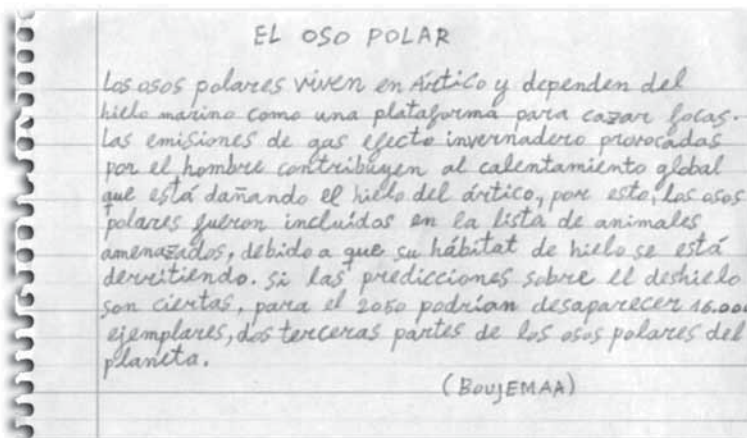 EL OSO POLAR
Los osos polares viven en Ártico y dependen del
hielo marino como una plataforma para cazar focas.
Las emisiones de gas efecto invernadero provocadas
por el hombre contribuyen al calentamiento global
que está dañando el hielo del ártico, por esto, los osos
polares fueron incluidos en la lista de animales
amenazados, debido a que su hábitat de hielo se está
derritiendo. si las predicciones sobre el deshielo
son ciertas, para el 2050 podrían desaparecer 16.000
ejemplares, dos terceras partes de los osos polares del
planeta.
(BOUJEMAA)